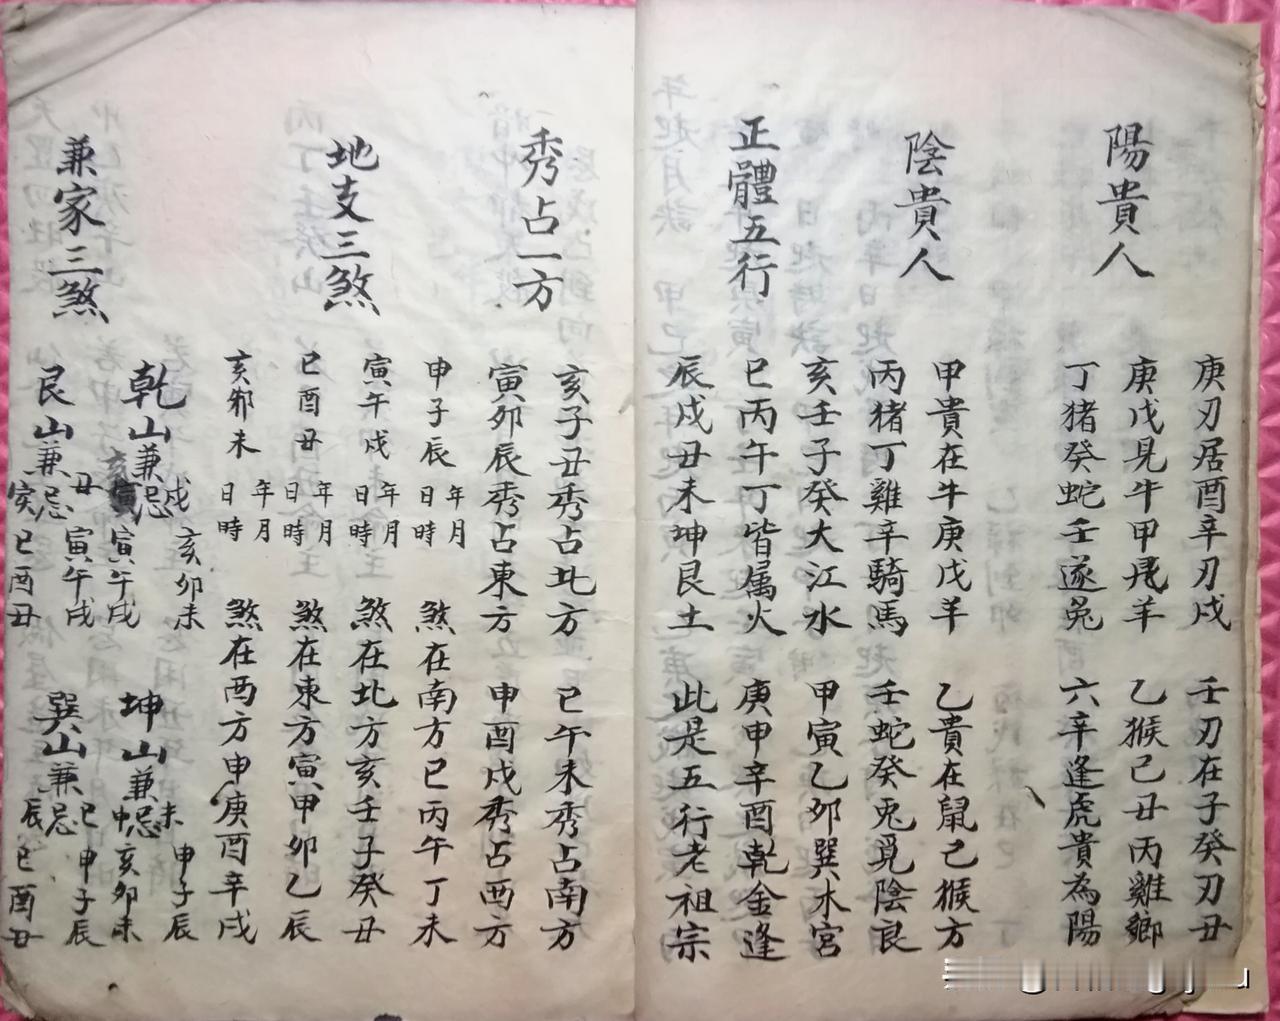 庚刃居酉辛刃戌 壬刃在子癸刃丑
陽貴人
庚戊見牛甲飛羊 乙猴己丑丙雞鄉
丁猪癸蛇壬遂兔 六辛逢虎貴為陽
陰貴人
甲貴在牛庚戊羊 乙貴在鼠己猴方
丙猪丁雞辛騎馬 壬蛇癸兎覓陰良
正體五行
亥壬子癸大江水 甲寅乙卯巽木宮
巳丙午丁皆属火 庚申辛酉乾金逢
辰戌丑未坤艮土 此是五行老祖宗
秀占一方
亥子丑秀占北方 巳午未秀占南方
寅卯辰秀占東方 申酉戌秀占西方
地支三煞
申子辰 年月日時 煞在南方巳丙午丁未
寅午戌 年月日時 煞在北方亥壬子癸丑
巳酉丑 年月日時 煞在東方寅甲卯乙辰
亥卯未 年月日時 煞在西方申庚酉辛戌
兼家三煞
乾山兼忌 戌 亥卯未
亥 寅午戌
坤山兼忌 未 申子辰
申 亥卯未
艮山兼忌 丑 寅午戌
寅 巳酉丑
巽山兼忌 巳 申子辰
辰 巳酉丑